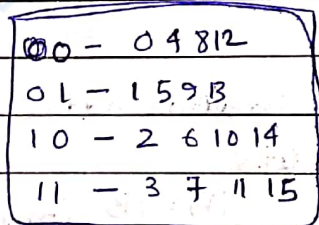 00 - 0 4 8 12
01 - 1 5 9 13
10 - 2 6 10 14
11 - 3 7 11 15